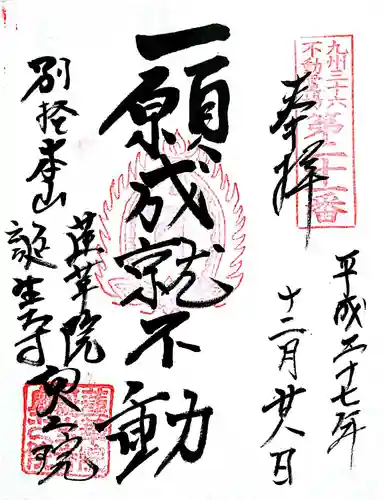 平成二十七年
十二月廿八日
九州三十六
不動霊場
第二十二番
奉拝
一願成就不動
蓮華院
誕生寺
奥之院
別格本山